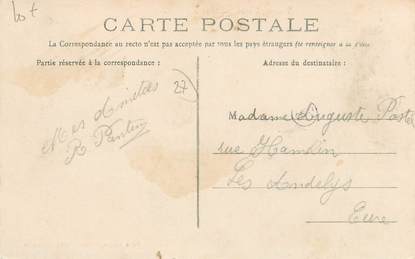 CARTE POSTALE
La Correspondance au recto n'est pas acceptée par tous les pays étrangers (se renseigner à la Poste)
Partie réservée à la correspondance :
Adresse du destinataire :
27
Mes Amitiés
R
Madame Auguste
rue Hamelin
Les Andelys
Eure